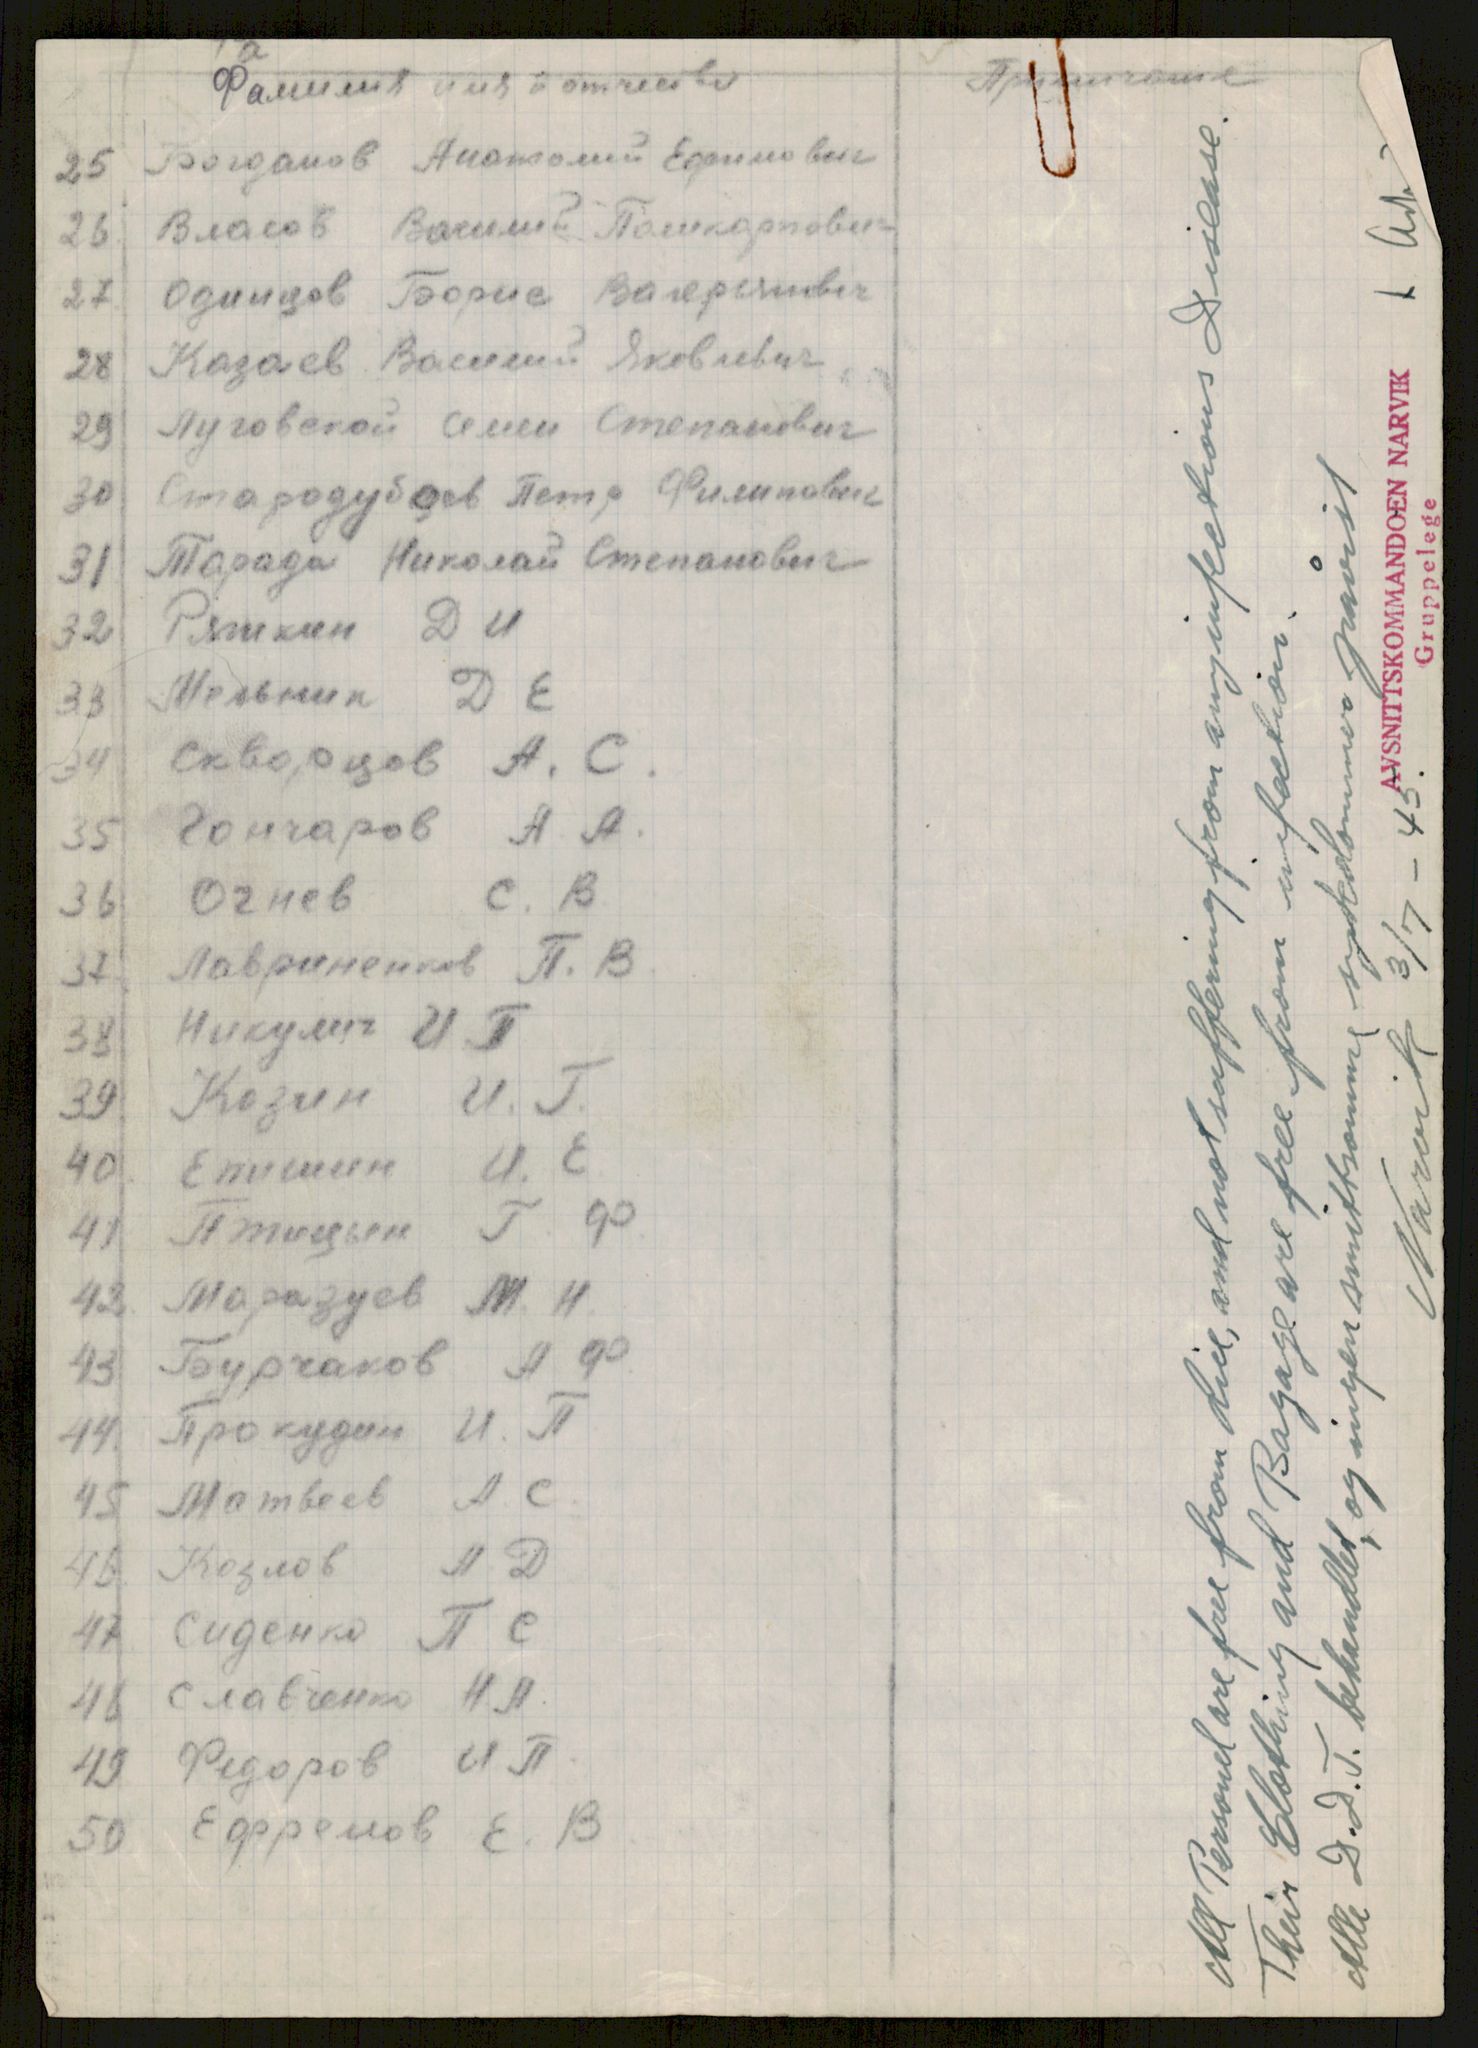 Фамилия имя и отчество Примечание
25 Богданов Анатолий Ефимович
26 Власов Василий Поликарпович
27 Одинцов Борис Валерьянович
28 Казаев Василий Яковлевич
29 Луговской Семен Степанович
30 Стародубцев Петр Филипович
31 Тарада Николай Степанович
32 Ряшкин Д И
33 Мельник Д Е
34 Скворцов А. С.
35 Гончаров А. А.
36 Огнев С. В
37 Лавриненков П. В
38 Никулин И П
39 Козин И. Г.
40 Епишин И. Е
41 Птицын Г. Ф
42 Маразуев М. Н
43 Бурчаков А Ф
44 Прокудин И. П
45 Матвеев А. С.
46 Козлов А Д
47 Сиденко П С
48 Славченко Н А.
49 Федоров И П.
50 Ефремов Е. В
All Personel are free from lice, and not suffering from any infectious Disease.
Their Clothing and Bagage are free from infection.
Alle D.D.T. behandlet, og ingen smittsomme sykdommer påvist
Narvik 3/7 - 45.
AVSNITTSKOMMANDOEN NARVIK
Gruppelege